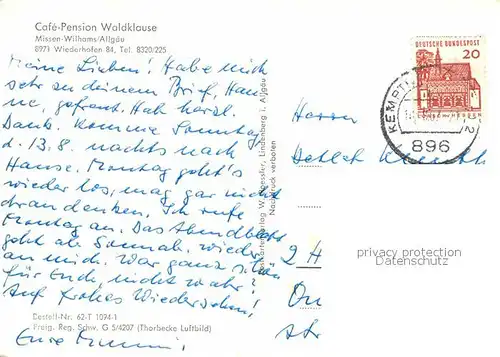 Café-Pension Waldklause
Missen-Wilhams/Allgäu
8971 Wiederhofen 84, Tel. 8320/225
Meine Lieben! Habe mich
sehr zu deinem Brief, Han
ne, gefreut. Hab herzl.
Dank. Komme Sonntag
d. 13.8. nachts nach
Hause. Montag geht's
wieder los, mag gar nicht
dran denken. Ich rufe
Montag an. Das Abendblatt
geht ab Sonnab. wieder
an mich. War ganz schön
für Euch, nicht wahr?
Auf frohes Wiedersehen!
Eure
Bestell-Nr. 62-T 1074-1
Freig. Reg. Schw. G 5/4207 (Thorbecke Luftbild)
Lindenberg i. Allgäu
Nachdruck verboten
DEUTSCHE BUNDESPOST
20
KEMPT
896
Herrn
Detlef
2 H
privacy protection
Datenschutz